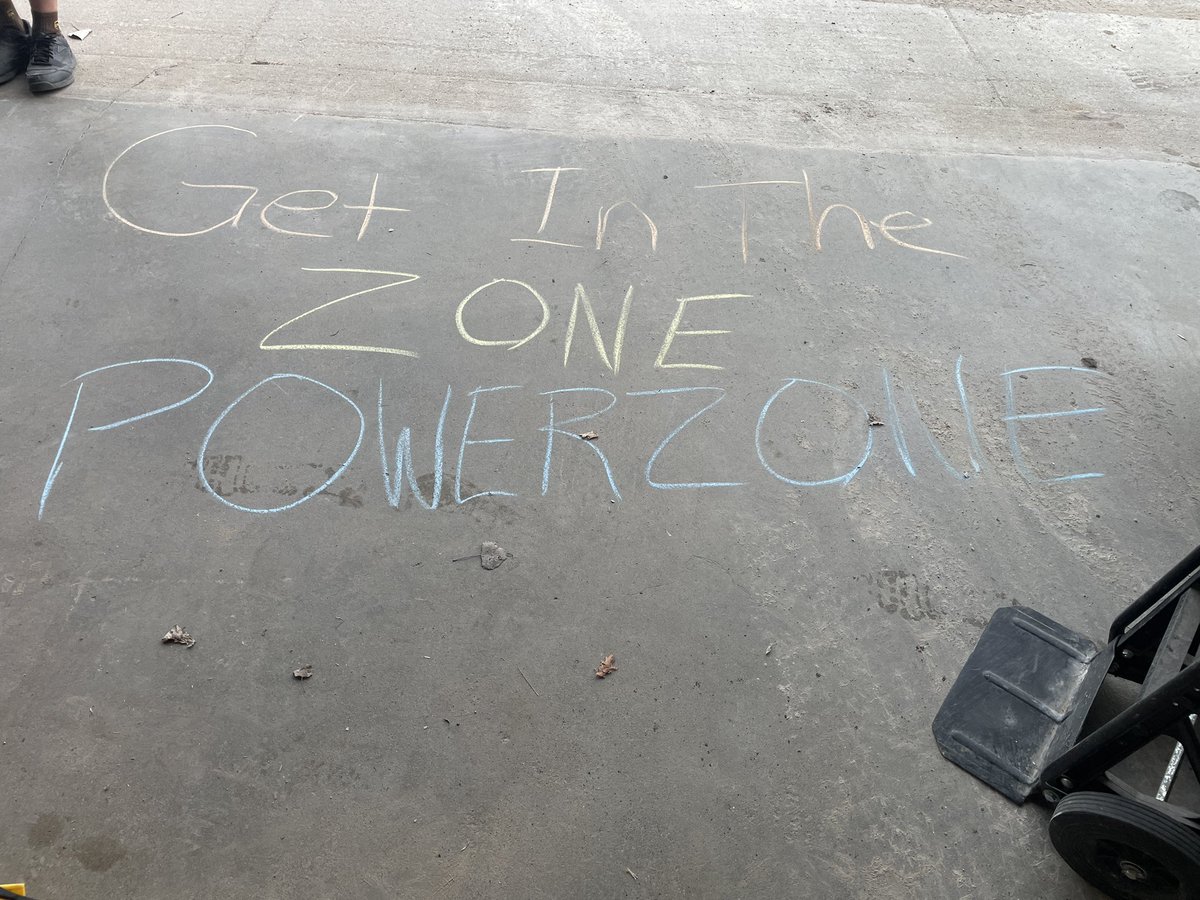 Get In The
ZONE
POWERZONE